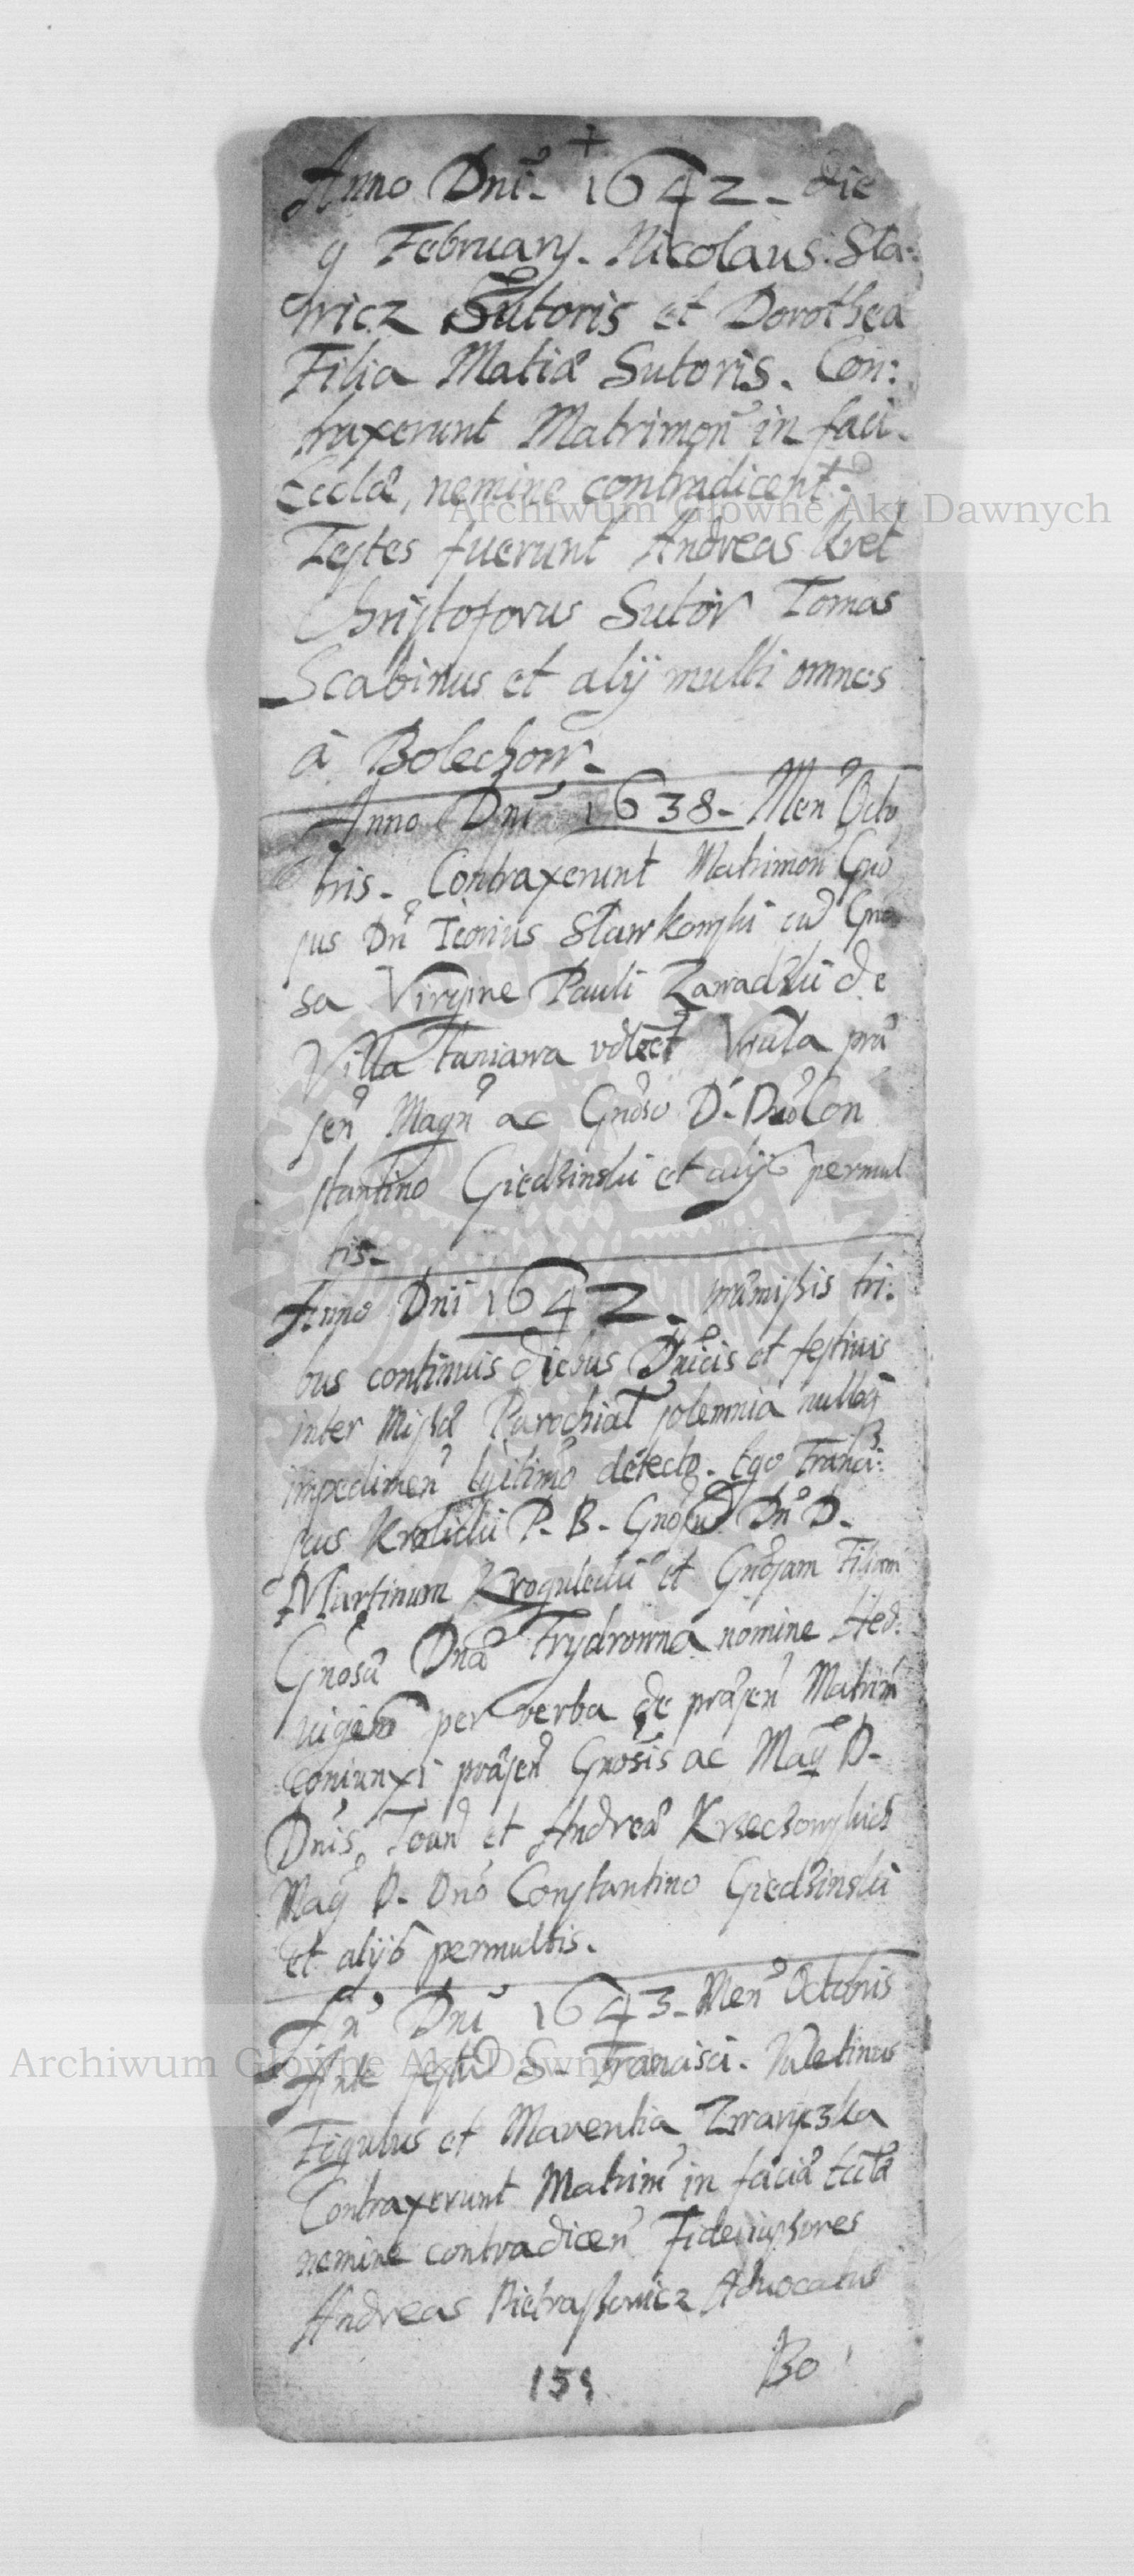 Anno Dni. 1642. die
9 February. Nicolaus Sta:
wicz Sutoris et Dorothea
Filia Matiæ Sutoris. Con:
traxerunt Matrimon in faci.
Ecclæ, nemine contradicent.
Testes fuerunt Andreas Kret
Christoforus Sutor Tomas
Scabinus et alij multi omnes
à Bolechow.
Anno Dni 1638. Men Octo
bris. Contraxerunt Matrimon Gno
sus Dn Sławkowski cu Gno
sa Virgine Pauli Zawadzki de
Villa Vrsula præ
sen Magn ac Gnoso D. Dno Con
stantino Giedzinski et alijs permul
tis.
Anno Dni 1642. præmissis tri:
bus continuis diebus Dnicis et festivis
inter Missæ Parochial solemnia nulloq
impedimen legitimo detecto. Ego Franci:
scus Krolicki P. B. Gnosu Dn D.
Martinum Krogulecki et Gnosam Filiam
Gnosæ Dnæ Frydrowna nomine Hed:
vigem per verba de præsen Matrim
coniunxi præsen Gnosis ac Mag D.
Dnis, Joan et Andrea Krzeczowskich
Mag D. Dno Constantino Giedzinski
et alijs permultis.
An Dni 1643. Men Octobris
Ante festu S. Francisci. Valetinus
Figulus et Marentia
Contraxerunt Matrim in facie Eccle
nemine contradicen Fideiussores
Andreas Pietrassowicz Advocatus
Bo
159
Archiwum Główne Akt Dawnych
Archiwum Główne Akt Dawnych